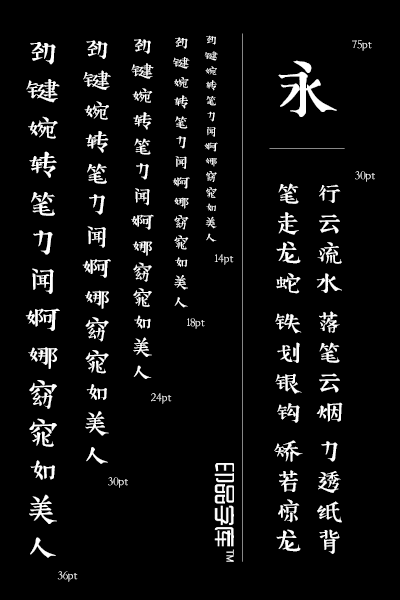 75pt
永
30pt
行云流水 落笔云烟 力透纸背
笔走龙蛇 铁划银钩 矫若惊龙
劲键婉转笔力闻婀娜窈窕如美人
14pt
劲键婉转笔力闻婀娜窈窕如美人
18pt
劲键婉转笔力闻婀娜窈窕如美人
24pt
劲键婉转笔力闻婀娜窈窕如美人
30pt
劲键婉转笔力闻婀娜窈窕如美人
36pt
印品字库™